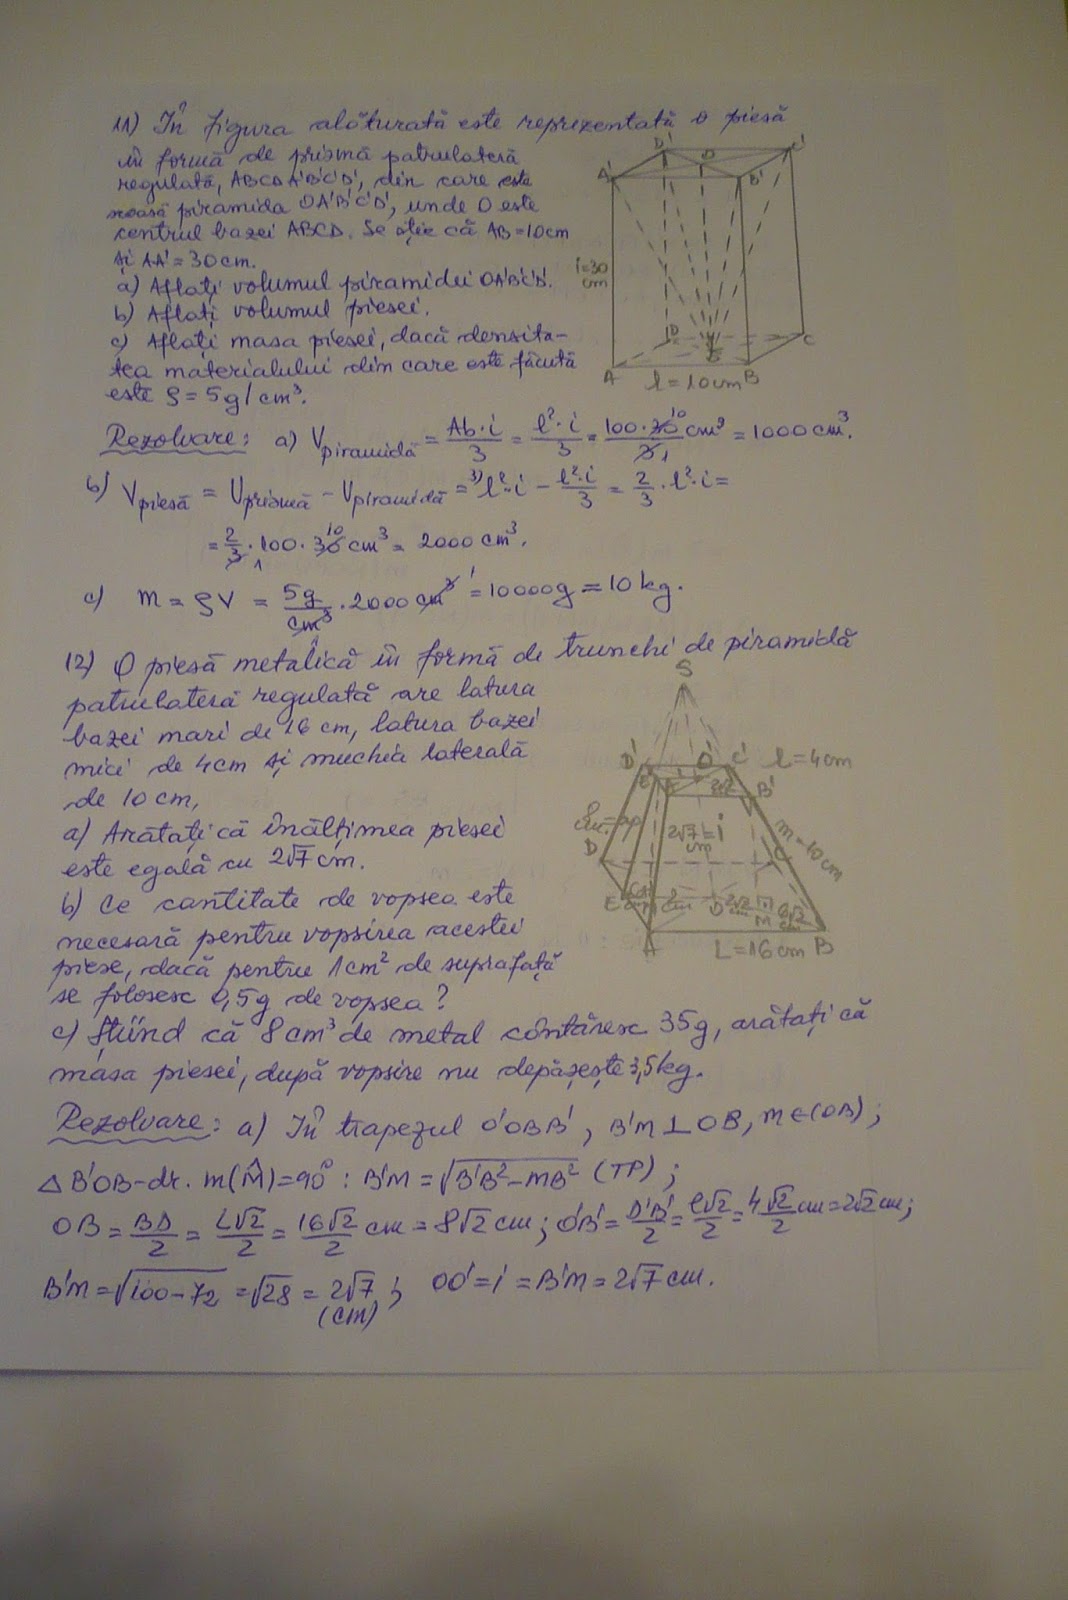 11) În figura alăturată este reprezentată o piesă
în formă de prismă patrulateră
regulată, ABCDA'B'C'D', din care este
scoasă piramida OA'B'C'D', unde O este
centrul bazei ABCD. Se știe că AB=10cm
și AA'=30cm.
a) Aflați volumul piramidei OA'B'C'D'.
b) Aflați volumul piesei.
c) Aflați masa piesei, dacă densita-
tea materialului din care este făcută
este ρ=5g/cm³.
D' O C'
A' B'
i=30
cm
D C
O
A l=10cm B
Rezolvare: a) Vpiramidă = Ab·i/3 = l²·i/3 = 100·30 10/3 1 cm³ = 1000 cm³.
b) Vpiesă = Vprismă - Vpiramidă = ³⁾l²·i - l²·i/3 = 2/3·l²·i =
= 2/3 1·100·30 10 cm³ = 2000 cm³.
c) m = ρV = 5g/cm³·2000 cm³ 1 = 10000g = 10 kg.
12) O piesă metalică în formă de trunchi de piramidă
patrulateră regulată are latura
bazei mari de 16 cm, latura bazei
mici de 4cm și muchia laterală
de 10 cm,
a) Arătați că înălțimea piesei
este egală cu 2√7 cm.
b) Ce cantitate de vopsea este
necesară pentru vopsirea acestei
piese, dacă pentru 1cm² de suprafață
se folosesc 0,5g de vopsea?
c) Știind că 8 cm³ de metal cântăresc 35g, arătați că
masa piesei, după vopsire nu depășește 3,5kg.
S
D' O' C' l=4cm
B'
2√7=i
cm
m=10cm
D C
E O M
A L=16cm B
Rezolvare: a) În trapezul O'OBB', B'M⊥OB, M∈(OB);
△ B'OB-dr. m(M̂)=90° : B'M=√B'B²-MB² (TP);
OB = BD/2 = L√2/2 = 16√2/2 cm = 8√2 cm; O'B' = D'B'/2 = l√2/2 = 4√2/2 cm=2√2 cm;
B'M=√100-72 =√28 = 2√7 ; OO'=i=B'M=2√7 cm.
(cm)